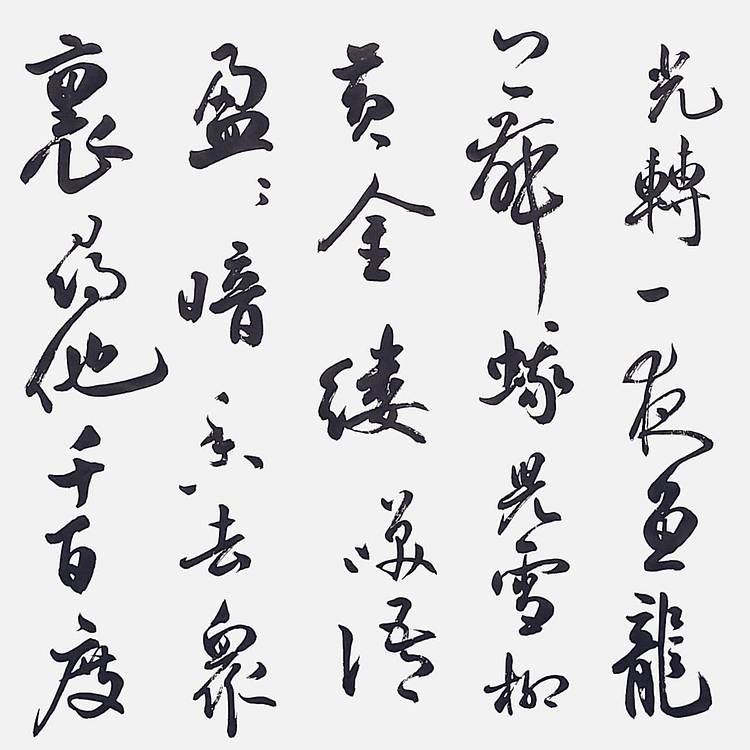 光轉一夜魚龍
舞蛾兒雪柳
黃金縷笑語
盈盈暗香去眾
裏尋他千百度